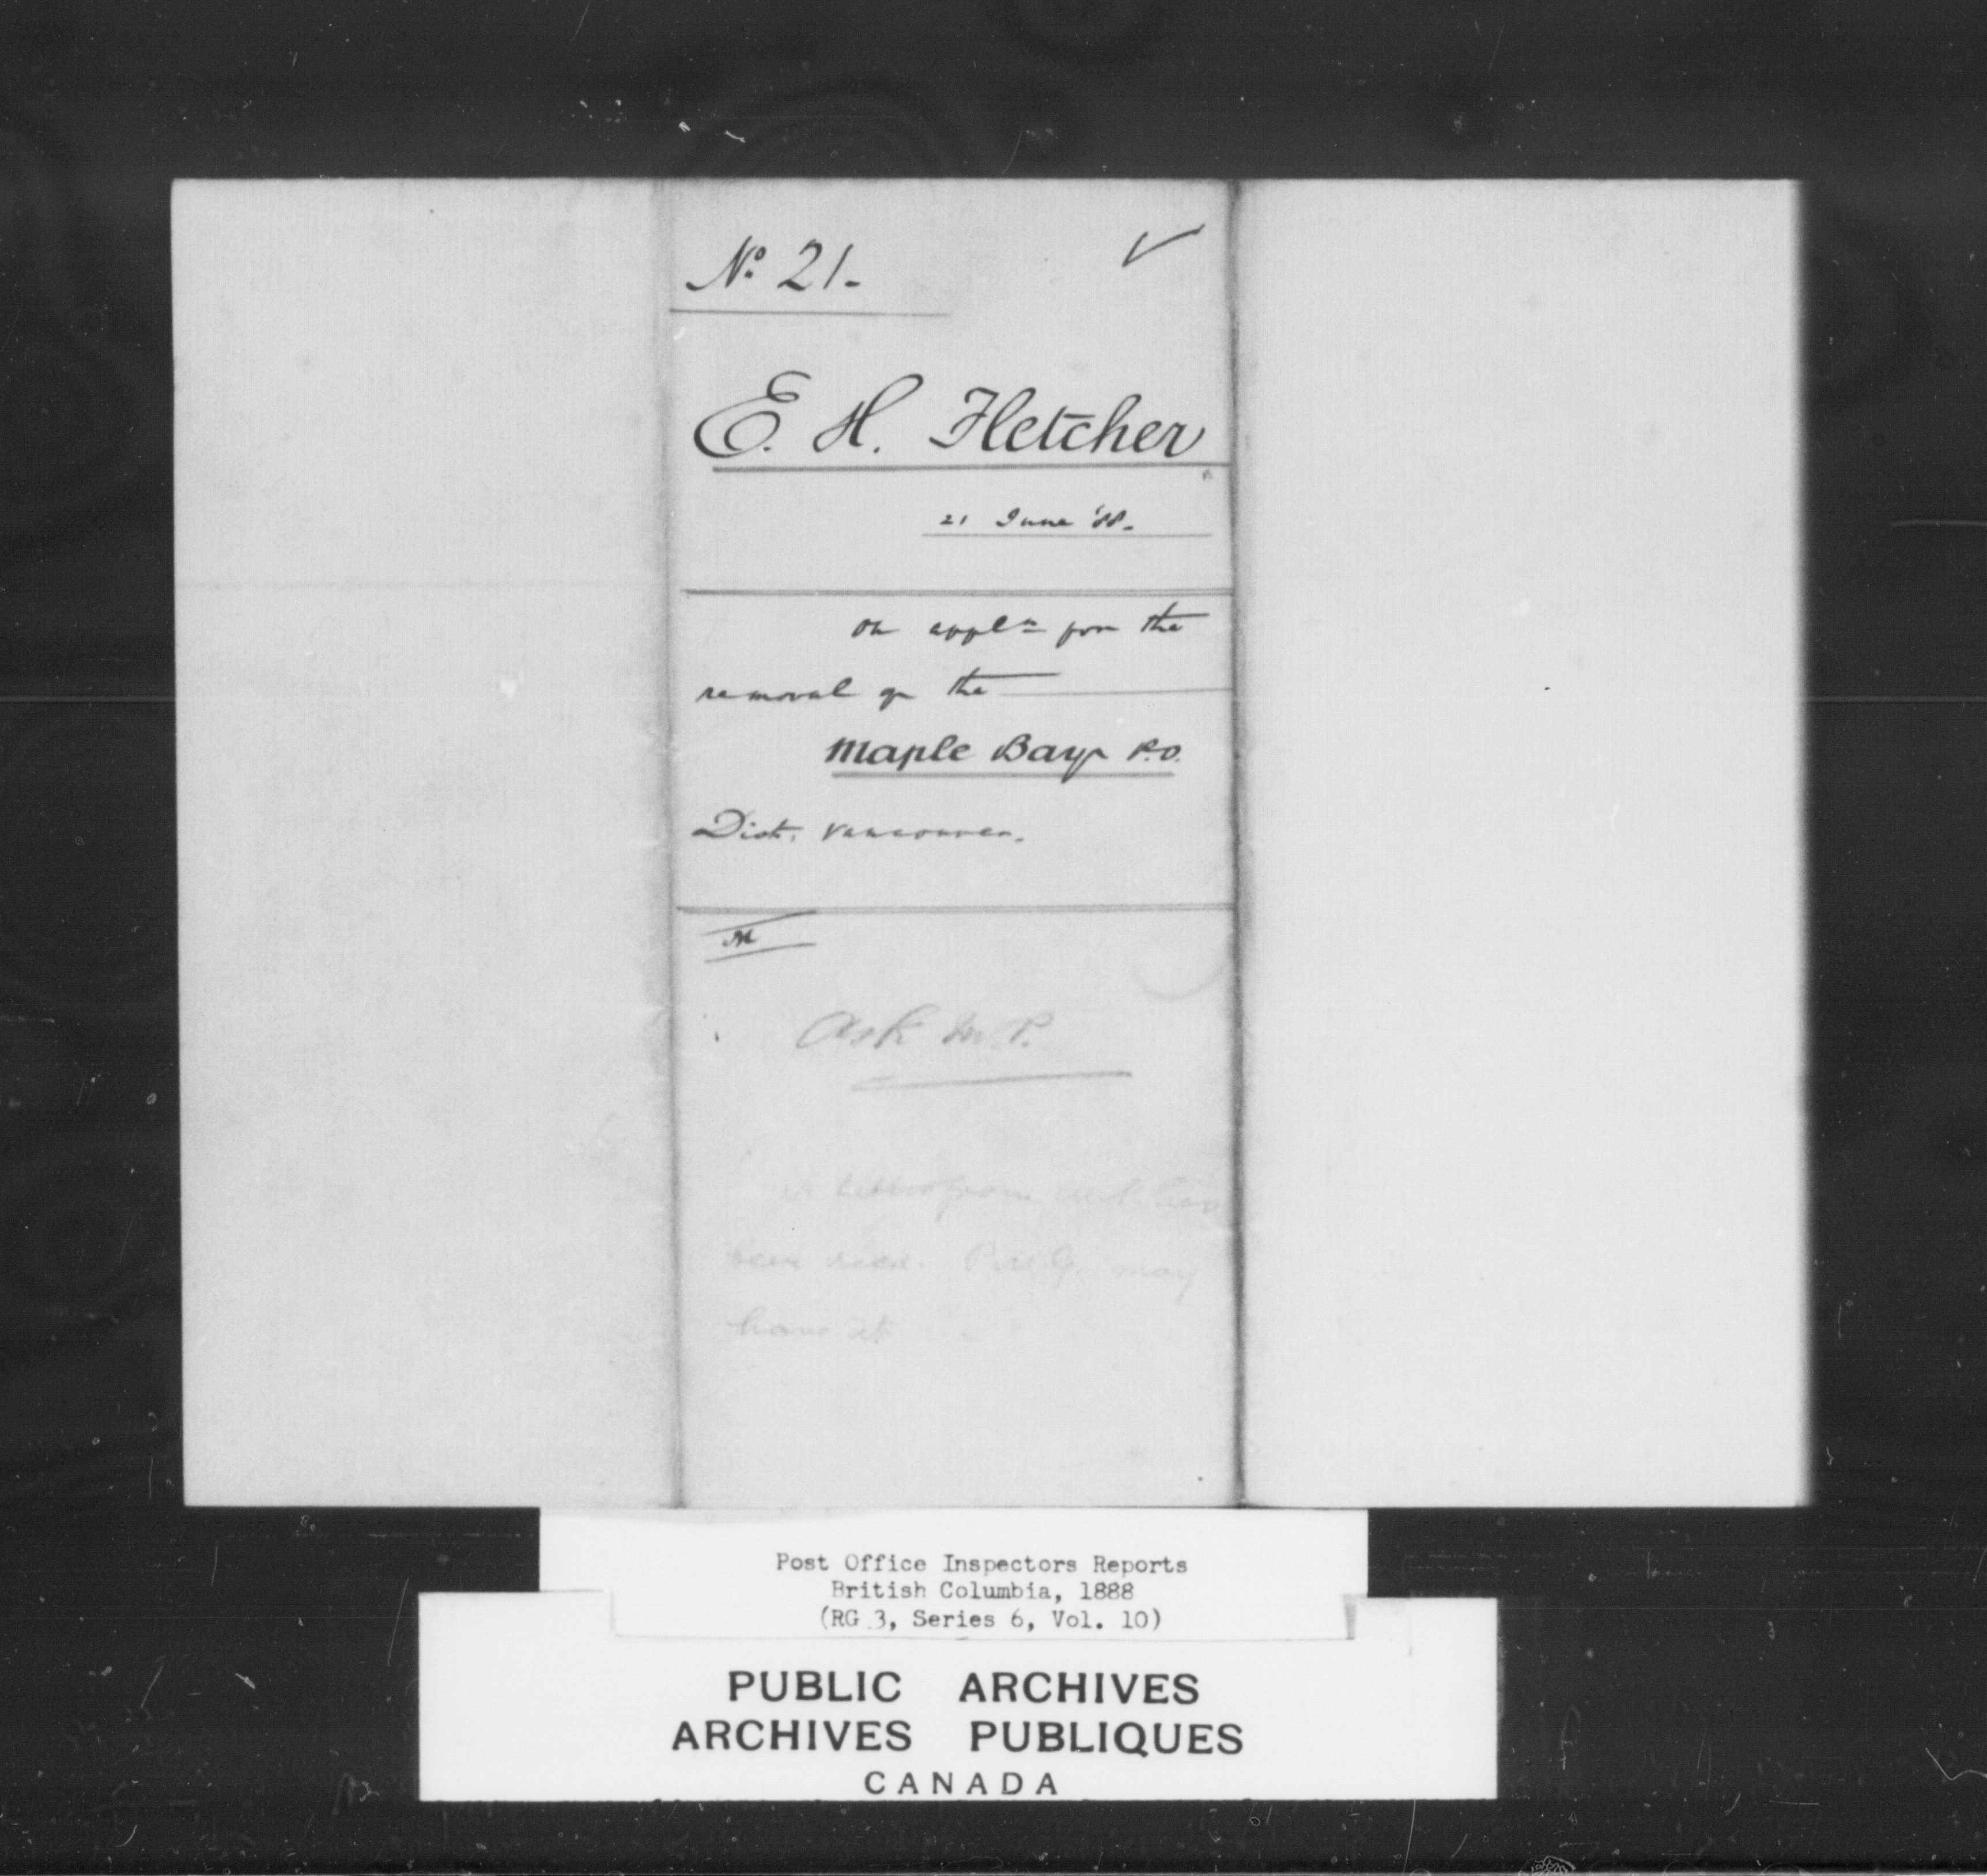 No. 21.
E. H. Fletcher
21 June '88.
On appln for the
removal of the
Maple Bay P.O.
Dist. Vancouver.
M
Ask M.P.
from M.P. has
been recd. P.M.G. may
have it
Post Office Inspectors Reports
British Columbia, 1888
(RG 3, Series 6, Vol. 10)
PUBLIC ARCHIVES
ARCHIVES PUBLIQUES
CANADA